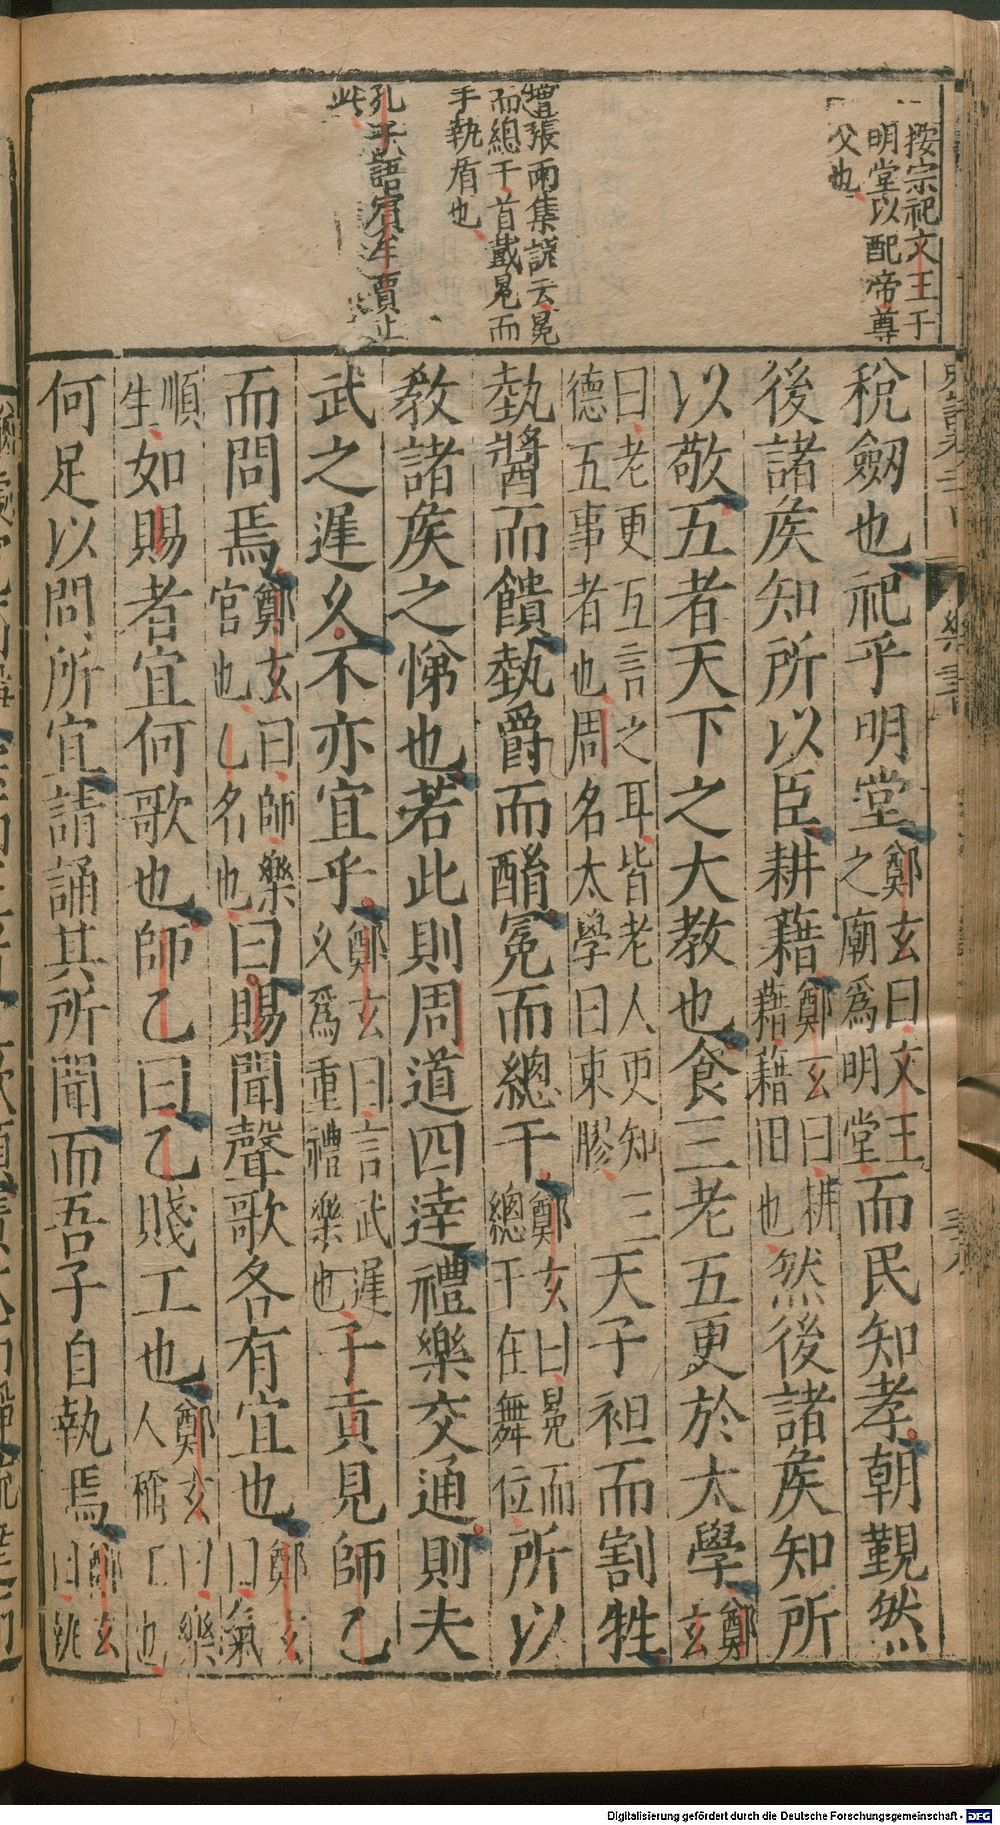 按宗祀文王于
明堂以配帝尊
父也
張雨集說云冕
而總干首戴冕而
手執盾也
孔子語賓牟賈止
此
稅劒也祀乎明堂鄭玄曰文王之廟為明堂而民知孝朝覲然
後諸矦知所以臣耕藉鄭玄曰耕藉藉田也然後諸矦知所
以敬五者天下之大教也食三老五更於太學鄭玄
曰老更互言之耳皆老人更知三德五事者也周名太學曰東膠天子袒而割牲
執醬而饋執爵而酳冕而總干鄭玄曰冕而總干在舞位所以
教諸矦之悌也若此則周道四達禮樂交通則夫
武之遲久不亦宜乎鄭玄曰言武遲久為重禮樂也子貢見師乙
而問焉鄭玄曰師樂官也乙名也曰賜聞聲歌各有宜也鄭玄曰氣
順生如賜者宜何歌也師乙曰乙賤工也鄭玄曰樂人稱工也
何足以問所宜請誦其所聞而吾子自執焉鄭玄曰執
Digitalisierung gefördert durch die Deutsche Forschungsgemeinschaft - DFG